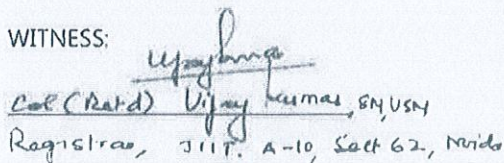 WITNESS:
Col (Retd) Vijay Kumar, SM, VSM
Registrar, JIIT. A-10, Sect 62, Noida